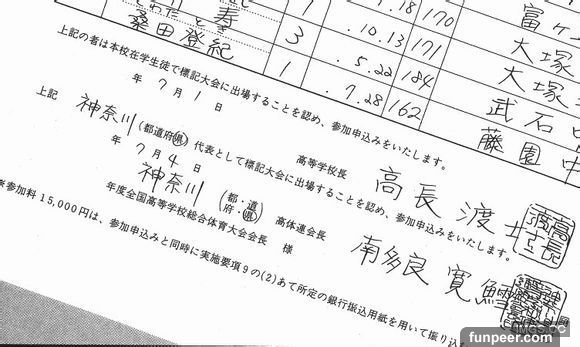 寿
桑田登紀
7 .18 170 富ヶ
3 .10.13 171 大塚
1 .5.22 184 大塚
.7.28 162 武石
藤園中
上記の者は本校在学生徒で標記大会に出場することを認め、参加申込みをいたします。
年 7月1日
高等学校長 高長 渡
上記 神奈川(都道府県)代表として標記大会に出場することを認め、参加申込みをいたします。
年 7月4日
神奈川(都・道府・県)高体連会長 南多良 寛鱈
年度全国高等学校総合体育大会会長 様
※参加料15,000円は、参加申込みと同時に実施要項9の(2)あて所定の銀行振込用紙を用いて振り込
www.funpeer.com